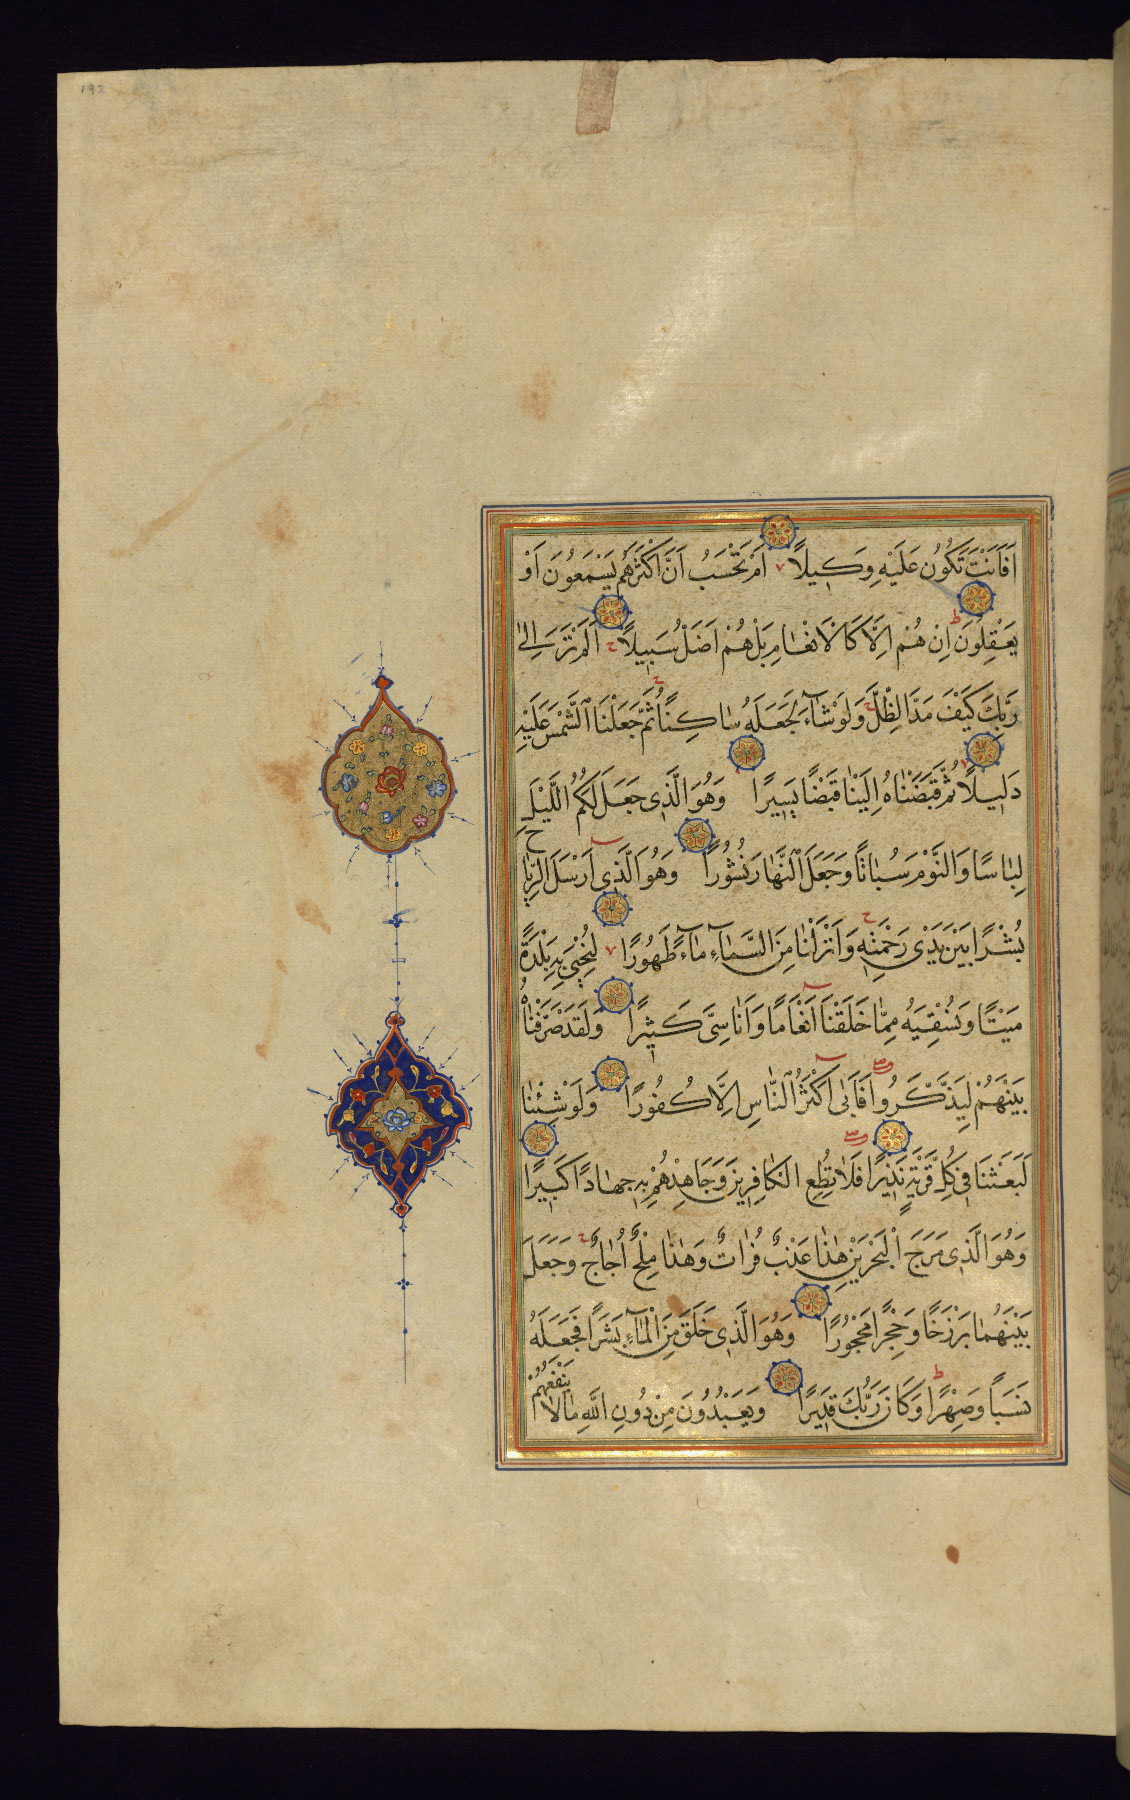 192
اَفَاَنْتَ تَكُونُ عَلَيْهِ وَكِيلاً اَمْ تَحْسَبُ اَنَّ اَكْثَرَهُمْ يَسْمَعُونَ اَوْ
يَعْقِلُونَ اِنْ هُمْ اِلَّا كَالْاَنْعَامِ بَلْ هُمْ اَضَلُّ سَبِيلاً اَلَمْ تَرَ اِلىٰ
رَبِّكَ كَيْفَ مَدَّ الظِّلَّ وَلَوْ شَاۤءَ لَجَعَلَهُ سَاكِنًا ثُمَّ جَعَلْنَا الشَّمْسَ عَلَيْهِ
دَلِيلًا ثُمَّ قَبَضْنَاهُ اِلَيْنَا قَبْضًا يَسِيرًا وَهُوَ الَّذِى جَعَلَ لَكُمُ اللَّيْلَ
لِبَاسًا وَالنَّوْمَ سُبَاتًا وَجَعَلَ النَّهَارَ نُشُورًا وَهُوَ الَّذِى اَرْسَلَ الرِّيَاحَ
بُشْرًا بَيْنَ يَدَىْ رَحْمَتِهِ وَاَنْزَلْنَا مِنَ السَّمَاۤءِ مَاۤءً طَهُورًا لِنُحْيِىَ بِهِ بَلْدَةً
مَيْتًا وَنُسْقِيَهُ مِمَّا خَلَقْنَا اَنْعَامًا وَاَنَاسِىَّ كَثِيرًا وَلَقَدْ صَرَّفْنَاهُ
بَيْنَهُمْ لِيَذَّكَّرُوا فَاَبٰى اَكْثَرُ النَّاسِ اِلَّا كُفُورًا وَلَوْ شِئْنَا
لَبَعَثْنَا فِى كُلِّ قَرْيَةٍ نَذِيرًا فَلَا تُطِعِ الْكَافِرِينَ وَجَاهِدْهُمْ بِهِ جِهَادًا كَبِيرًا
وَهُوَ الَّذِى مَرَجَ الْبَحْرَيْنِ هٰذَا عَذْبٌ فُرَاتٌ وَهٰذَا مِلْحٌ اُجَاجٌ وَجَعَلَ
بَيْنَهُمَا بَرْزَخًا وَحِجْرًا مَحْجُورًا وَهُوَ الَّذِى خَلَقَ مِنَ الْمَاۤءِ بَشَرًا فَجَعَلَهُ
نَسَبًا وَصِهْرًا وَكَانَ رَبُّكَ قَدِيرًا وَيَعْبُدُونَ مِنْ دُونِ اللّٰهِ مَا لَا يَنْفَعُهُمْ